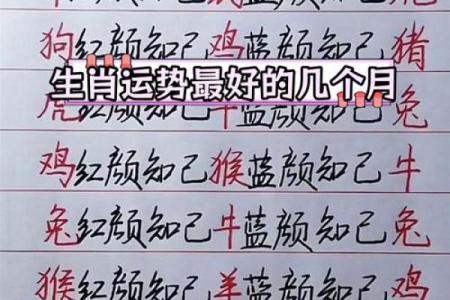 狗红颜知己鸡蓝颜知己猪
生肖运势最好的几个月
虎红颜知己牛蓝颜知己兔
鸡红颜知己猴蓝颜知己牛
兔红颜知己牛蓝颜知己兔
猴红颜知己羊蓝颜知己鸡